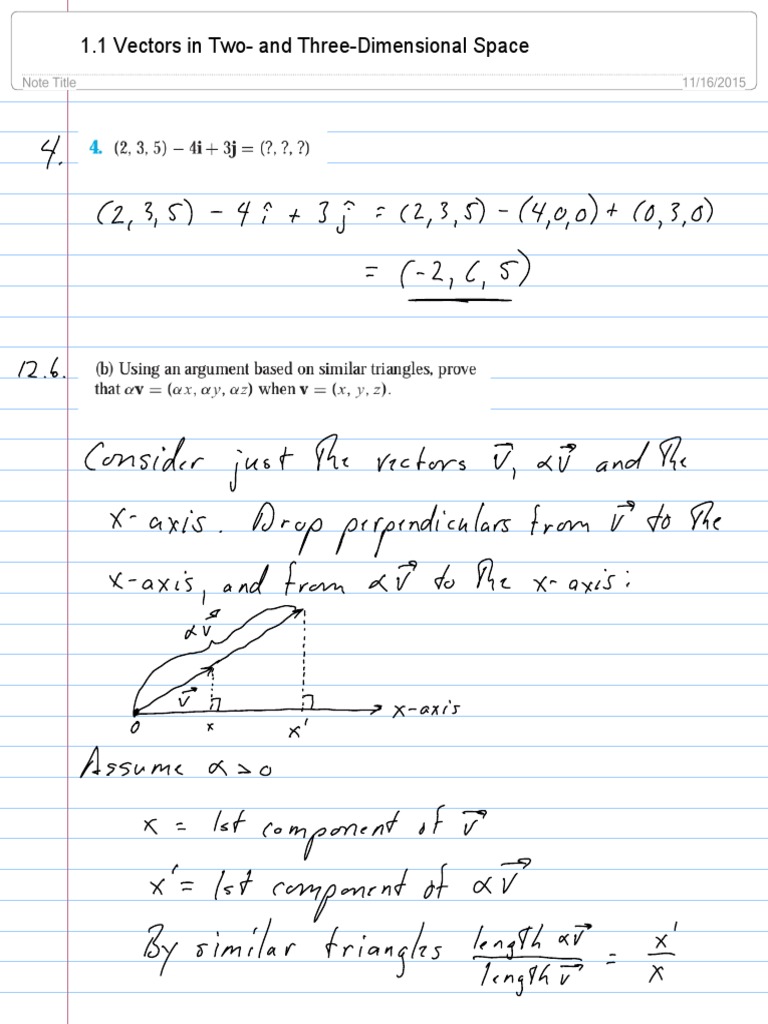 1.1 Vectors in Two- and Three-Dimensional Space
Note Title
11/16/2015
4.
4. (2, 3, 5) − 4i + 3j = (?, ?, ?)
(2, 3, 5) - 4î + 3ĵ = (2, 3, 5) - (4, 0, 0) + (0, 3, 0)
= (-2, 6, 5)
12.6.
(b) Using an argument based on similar triangles, prove
that αv = (αx, αy, αz) when v = (x, y, z).
Consider just The vectors v⃗, αv⃗ and The
x-axis. Drop perpendiculars from v⃗ to The
x-axis, and from αv⃗ to The x-axis:
αv⃗
v⃗
x-axis
0 x x'
Assume α > 0
x = 1st component of v⃗
x' = 1st component of αv⃗
By similar triangles length αv⃗ / length v⃗ = x' / x